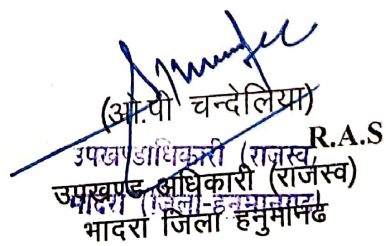 (ओ.पी चन्देलिया)
R.A.S
उपखण्डाधिकारी (राजस्व)
उपखण्ड अधिकारी (राजस्व)
भादरा (जिला-हनुमानगढ)
भादरा जिला हनुमानढ